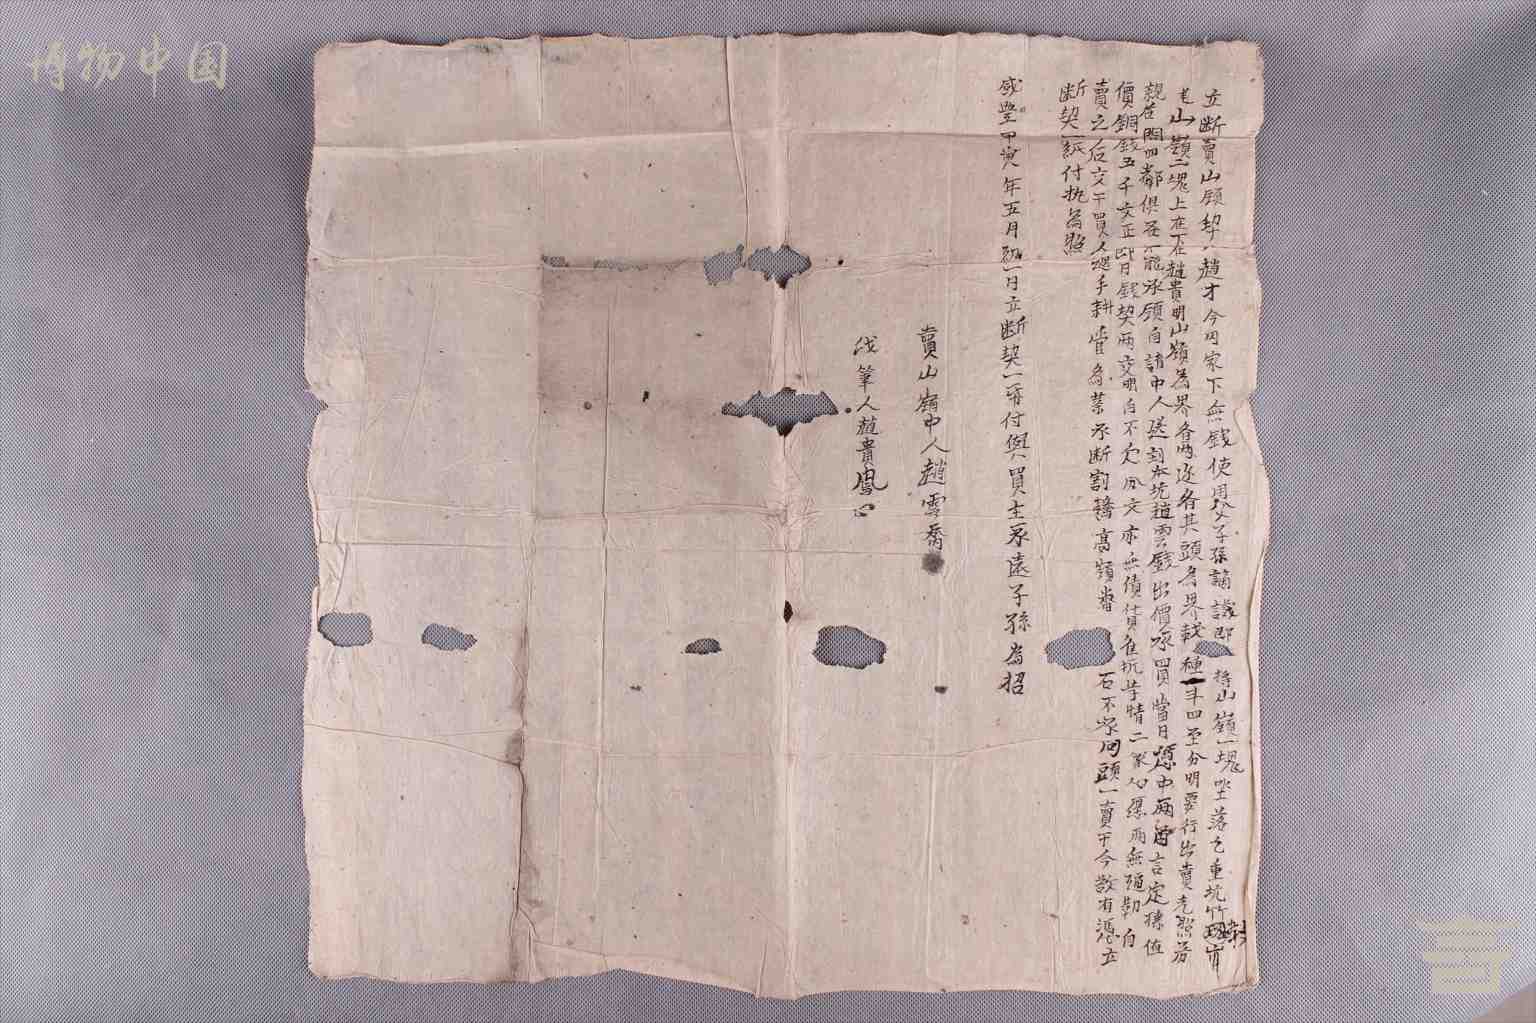 博物中国
立断賣山嶺契趙才今因家下無錢使用父子孫謫議即將山嶺一塊坐落七重坑竹
山嶺二塊上在下在趙貴明山嶺為界各其頭為界栽種一斗四至分明要行出賣先照房
親在問四鄰俱各不能承領自請中人送到本坑趙雲錢出價承買當日憑中兩言定摽值
價銅錢五千文正即日錢契兩交明白不欠分文亦無債貨准坑等情二家心愿兩無逼勒自
賣之后交干買人過手耕管為業永断割藤高嶺崩石不 回頭一賣干今敢有憑立
断契一紙付执為照
咸豐甲寅年五月初一日立断契一帋付與買主永遠子孫為招
賣山嶺中人趙雲喬
伐筆人趙貴鳳心